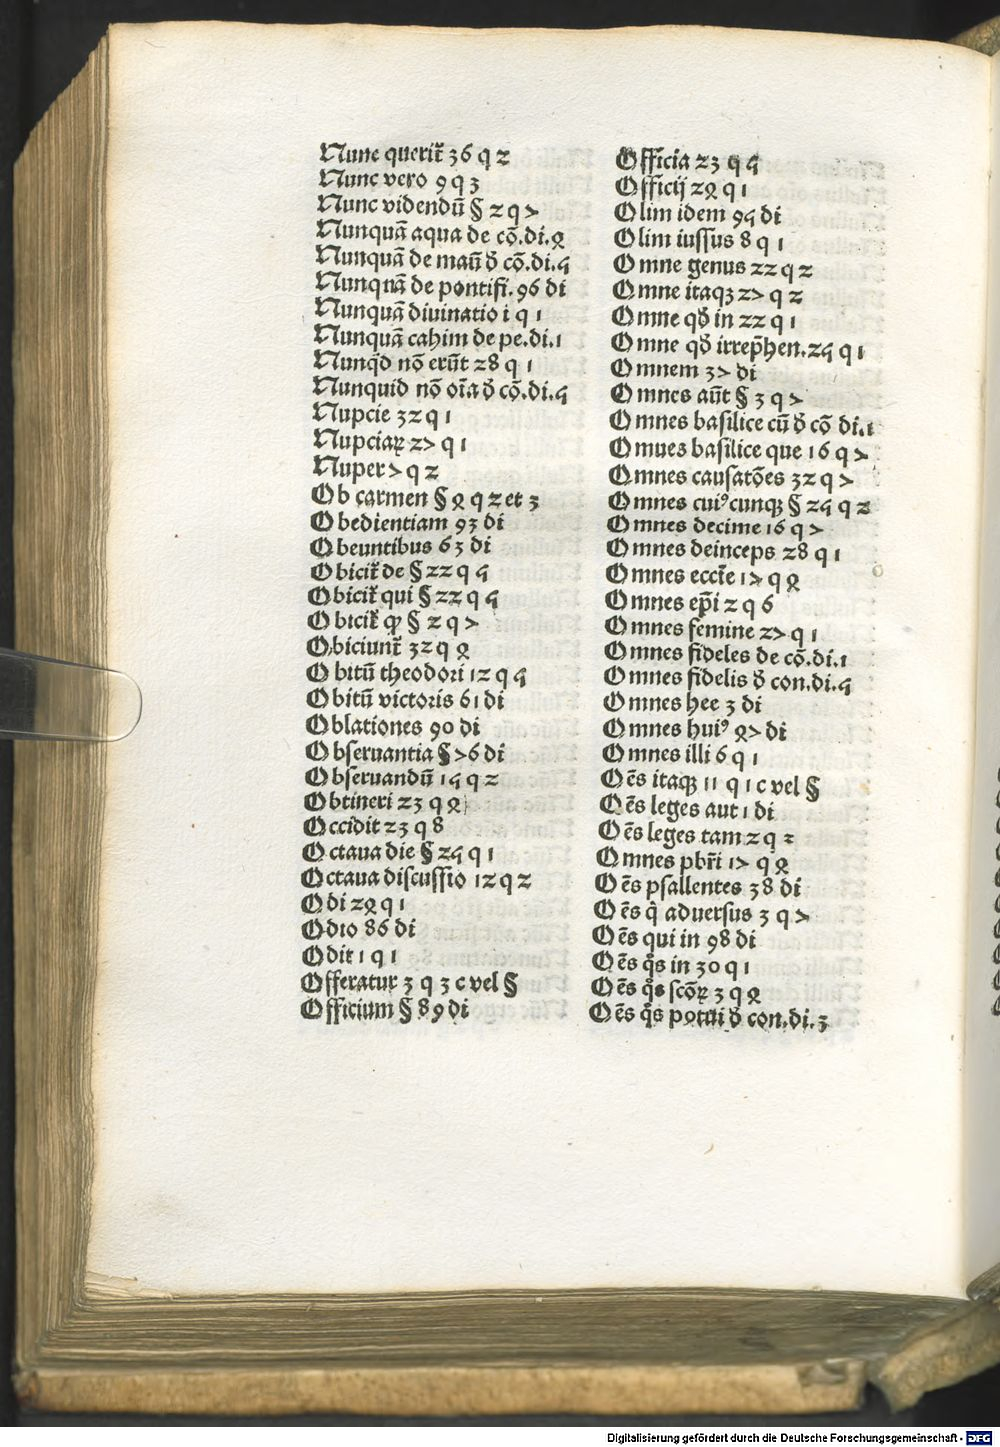 Nunc querit᷑ 36 q 2
Nunc vero 9 q 3
Nunc videndū § 2 q 7
Nunquā aqua de cō.di.4
Nunquā de maū ꝺ̄ cō.di.5
Nunquā de pontifi.96 di
Nunquā diuinatio i q 1
Nunquā cahim de pe.di.1
Nunq̄d nō erūt 28 q 1
Nunquid nō oīa ꝺ̄ cō.di.5
Nupcie 32 q 1
Nupciaꝝ 27 q 1
Nuper 7 q 2
Ob carmen § 4 q 2 et 3
Obedientiam 93 di
Obeuntibus 63 di
Obicit᷑ de § 22 q 5
Obicit᷑ qui § 22 q 5
Obicit᷑ ꝙ § 2 q 7
Obiciunt᷑ 32 q 4
Obitū theodori 12 q 5
Obitū victoris 61 di
Oblationes 90 di
Obseruantia § 76 di
Obseruandū 15 q 2
Obtineri 23 q 4
Occidit 23 q 8
Octaua die § 25 q 1
Octaua discussio 12 q 2
Odi 24 q 1
Odio 86 di
Odit 1 q 1
Offeratur 3 q 3 c vel §
Officium § 89 di
Officia 23 q 5
Officij 24 q 1
Olim idem 95 di
Olim iussus 8 q 1
Omne genus 22 q 2
Omne itaqꝫ 27 q 2
Omne qꝺ̄ in 22 q 1
Omne qꝺ̄ irrep̄hen.25 q 1
Omnem 37 di
Omnes aūt § 3 q 7
Omnes basilice cū ꝺ̄ cō di.1
Omues basilice que 16 q 7
Omnes causatōes 32 q 7
Omnes cuiꝰcunqꝫ § 25 q 2
Omnes decime 16 q 7
Omnes deinceps 28 q 1
Omnes eccīe 17 q 4
Omnes ep̄i 2 q 6
Omnes femine 27 q 1
Omnes fideles de cō.di.1
Omnes fidelis ꝺ̄ con.di.5
Omnes hec 3 di
Omnes huiꝰ 47 di
Omnes illi 6 q 1
Oēs itaqꝫ 11 q 1 c vel §
Oēs leges aut 1 di
Oēs leges tam 2 q 2
Omnes pbr̄i 17 q 4
Oēs psallentes 38 di
Oēs q̄ aduersus 3 q 7
Oēs qui in 98 di
Oēs q̄s in 30 q 1
Oēs q̄s scōꝝ 3 q 4
Oēs q̄s potui ꝺ̄ con.di.3
Digitalisierung gefördert durch die Deutsche Forschungsgemeinschaft - DFG